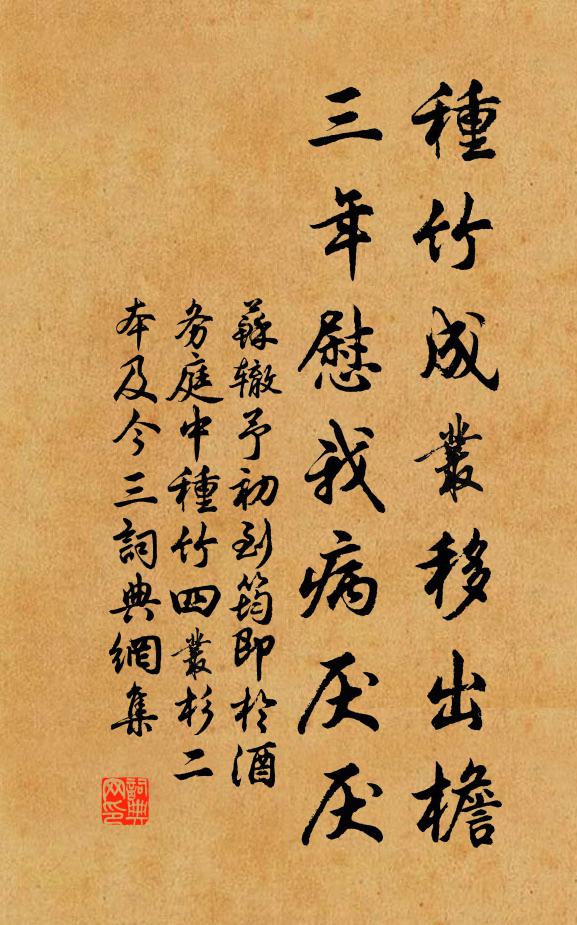 種竹成叢移出檐
三年慰我病厌厌
蘇辙予初到筠即於酒
务庭中種竹四叢杉二
本及今三詞典網集
詞典网印